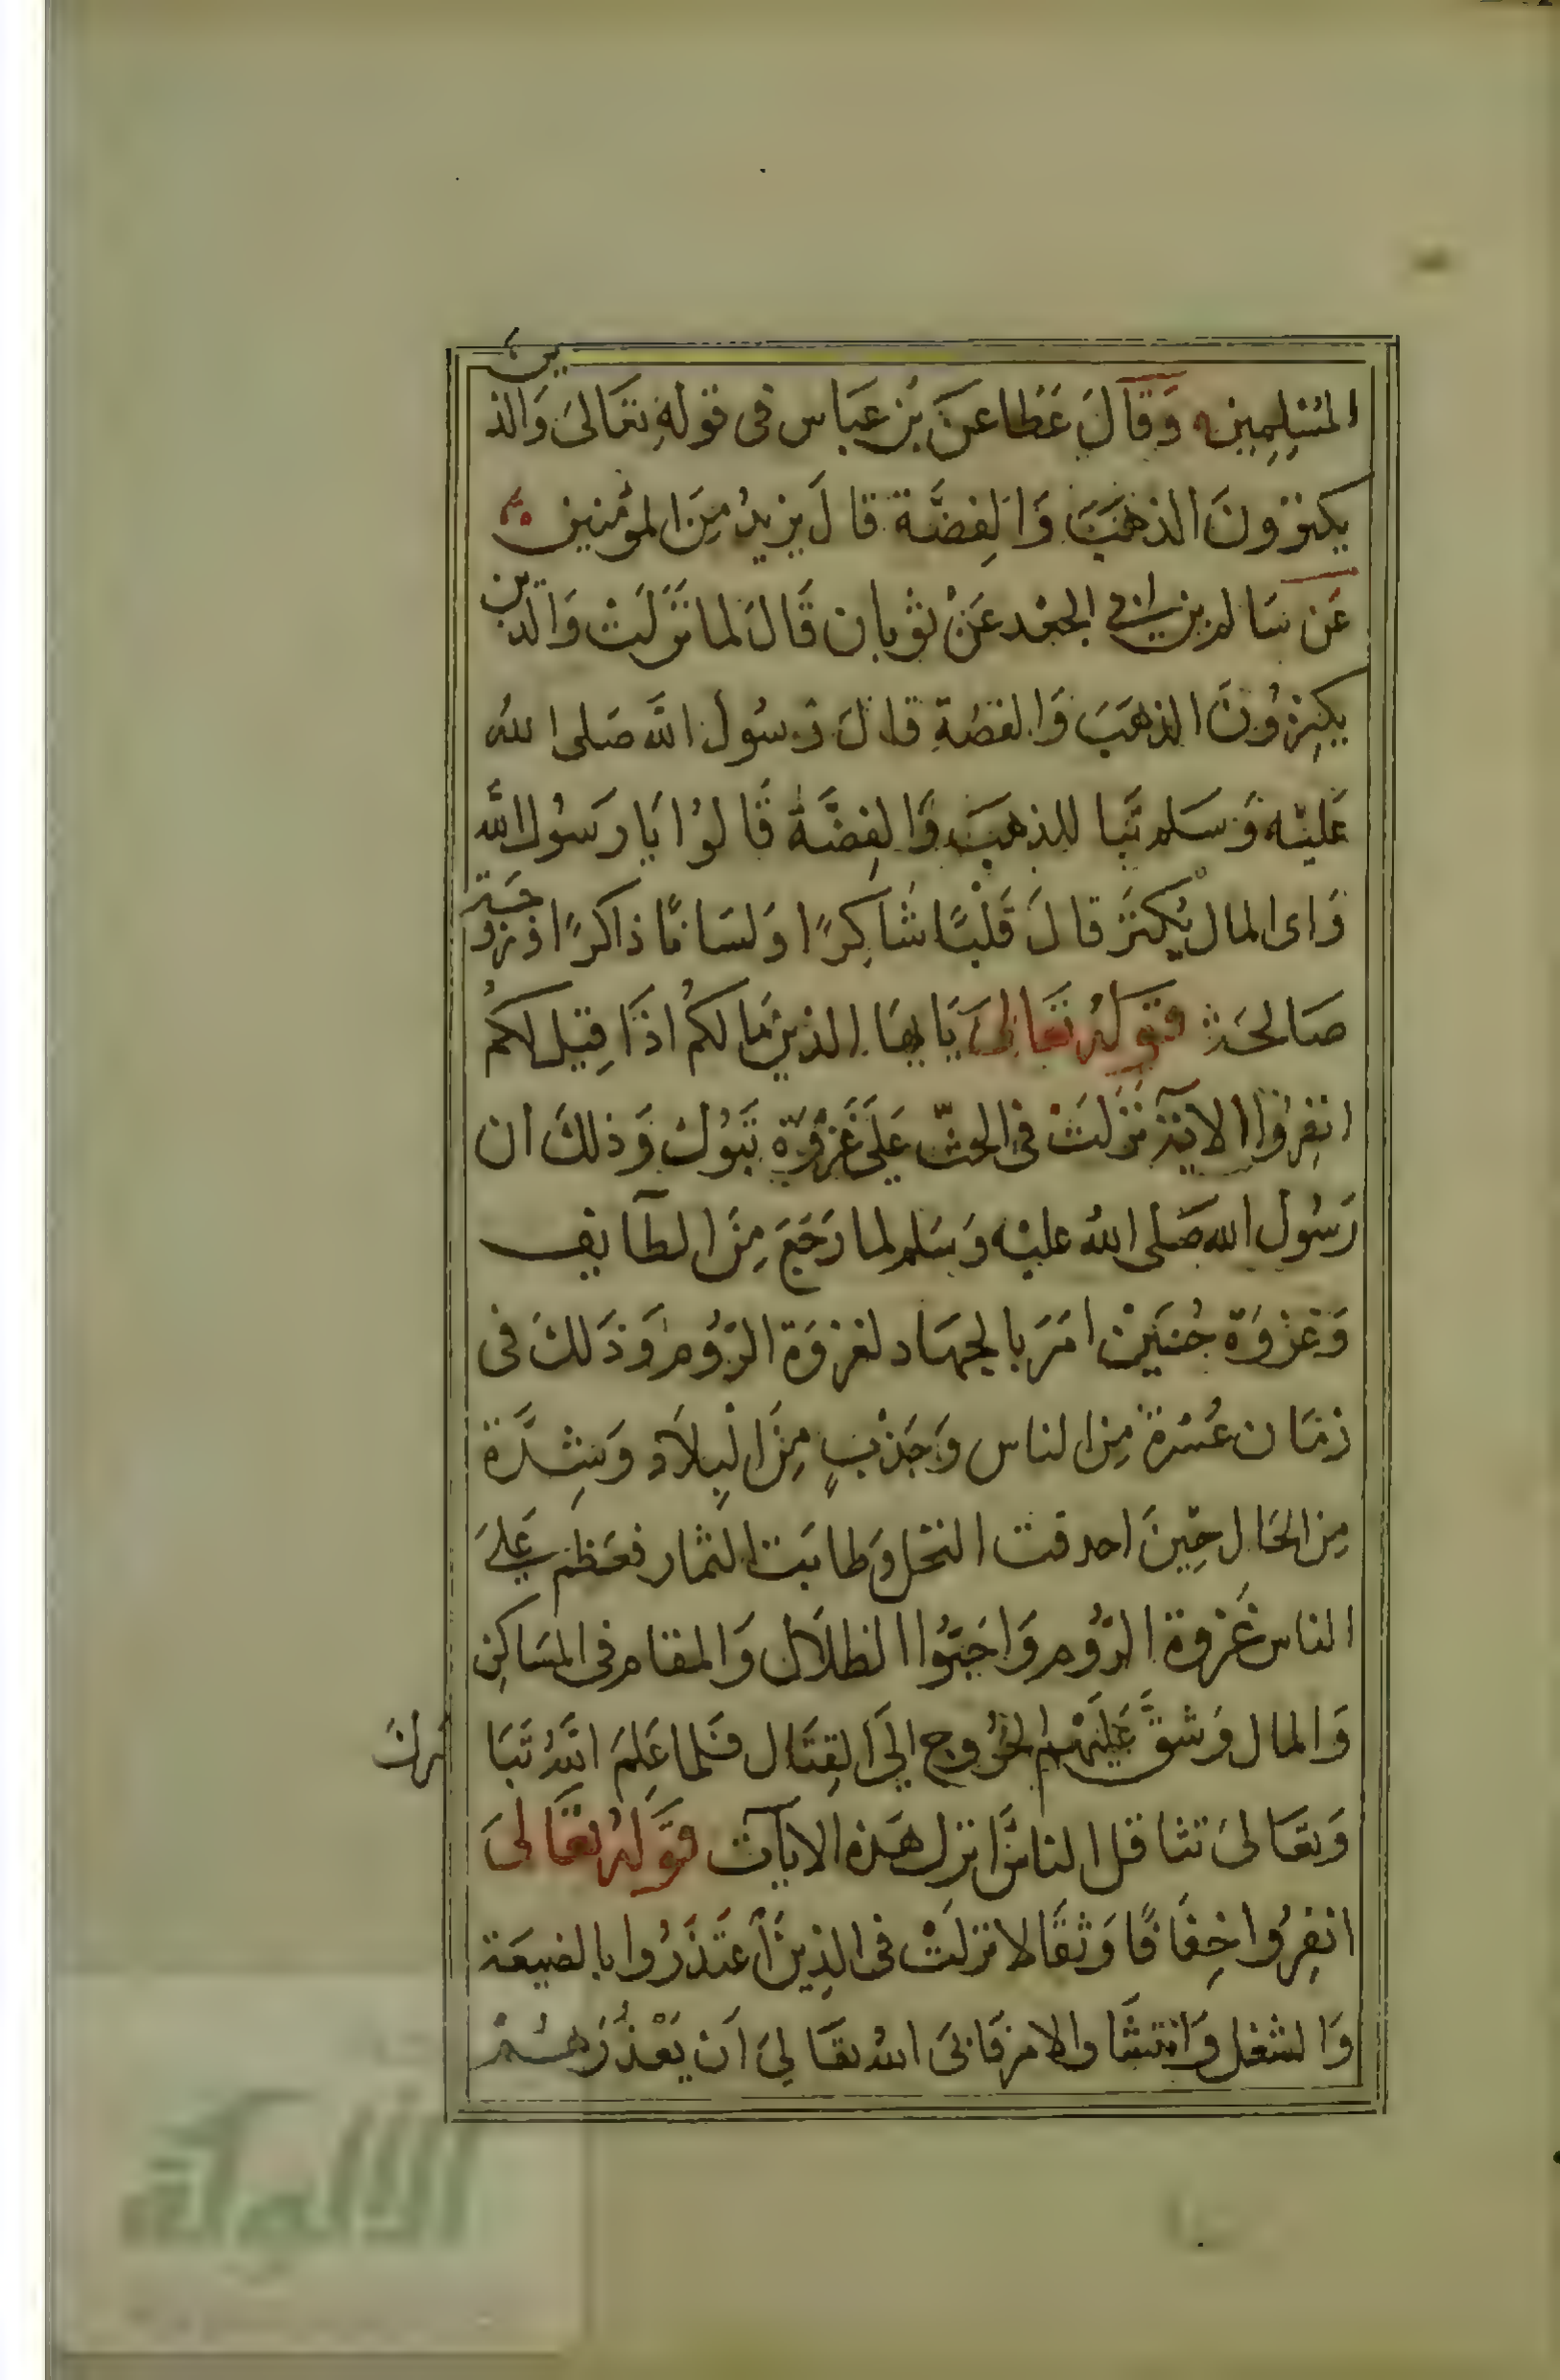 المُسْلِمِينَ وَقَالَ عَطَا عَنَ بْن عَبَاس في قولهِ تعَالىَ وَالذين
يكنزونَ الذهَبَ وَالفِضَّة قالَ يزيدُ مِنَ المؤمنين
عَن سَالم بن ابي الجعْد عَنْ ثوبان قَالَ لما نَزَلَتْ وَالذين
يكنِزُونَ الذهَبَ وَالفضة قالَ رَسُول الله صَلى الله
عَليْه وَسَلم تَبا للذهبَ وَالفِضَّة قَالوُا يَا رسُول الله
وَاى المال يُكنَز قالَ قَلْبًا شَاكِرًا وَلسَانًا ذاكرًا اوْ زوجَة
صَالحَة قولهُ تعَالىَ يَايهَا الذينَ مَا لكمُ اذَا قِيل لكمُ
انفِرُوا الآيَة نزَلَتْ في الحثّ عَلَى غَزْوَة تَبَوُك وَذلكَ ان
رَسُول الله صَلى اللهُ عليْه وَسَلم لما رَجَعَ مِنَ الطآيف
وَغزْوَة حُنَينْ امَرَ بالجهَاد لغزوَة الرّوُم وَذلكَ في
زمَان عُسْرة مِن الناس وَجَدْبٍ مِنَ الْبِلاَد وَشِدَّة
مِن الحَال حِينَ احدقت النخل وَطابَت الثمار فعَظم عَلىَ
الناس غَزوة الرُّوم وَاحَبَّوُا الظلاَل وَالمقام في المسَاكِن
وَالمال وَشقَّ عَليَهْم الخرُوج الىَ القِتَال فَلما عَلِمَ اللهُ تَبَا
رك
وَتعَالىَ تثاقل الناسَ انزل هَذه الايآت قولهُ تعَالىَ
انفِرُوا خِفَافًا وَثقَالا نزلَتْ في الذِينَ اَعتَذَرُوا بالضيعَة
وَالشغل وَانتشَار الامر فَابىَ اللهُ تعَالىَ اَن يَعْذُرَهُمْ
الألوكة